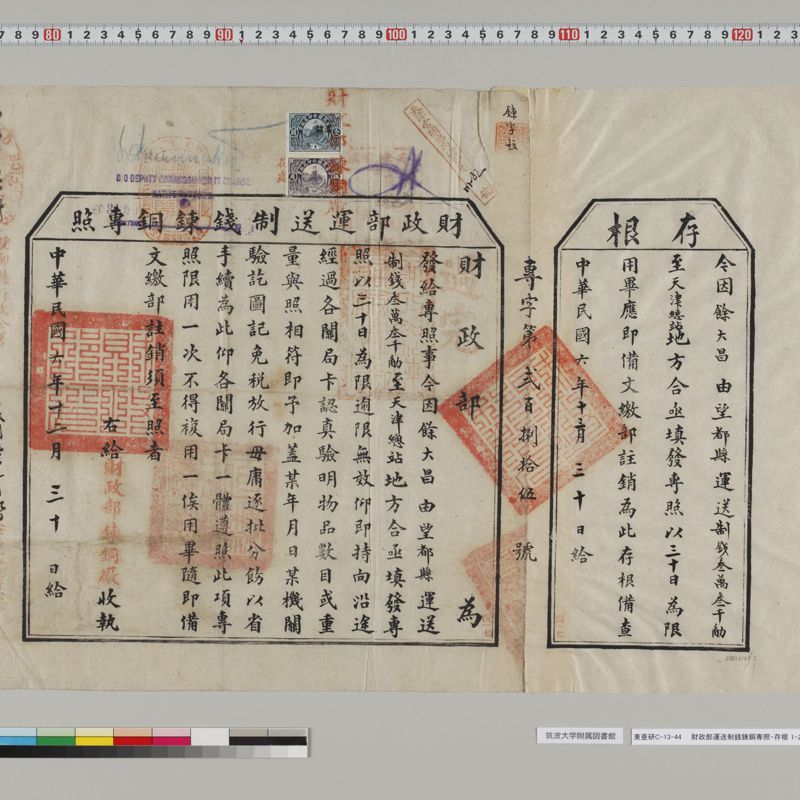 存根
今因餘大昌 由望都縣運送制錢叁萬叁千觔
至天津總站地方合亟填發專照以三十日為限
用畢應即備文繳部註銷為此存根備查
中華民國六年十二月三十日給
專字第貳百捌拾伍號
財政部運送制錢鍊銅專照
財政部 為
發給專照事今因餘大昌 由望都縣運送
制錢叁萬叁千觔至天津總站地方合亟填發專
照以三十日為限逾限無效仰即持向沿途
經過各關局卡認真驗明物品數目或重
量與照相符即予加蓋某年月日某機關
驗訖圖記免稅放行毋庸逐批分飭以省
手續為此仰各關局卡一體遵照此項專
照限用一次不得複用一俟用畢隨即備
文繳部註銷須至照者
右給財政部鍊銅廠 收執
中華民國六年十二月三十日給
筑波大学附属図書館
東亜研C-13-44 財政部運送制銭錬銅専照・存根